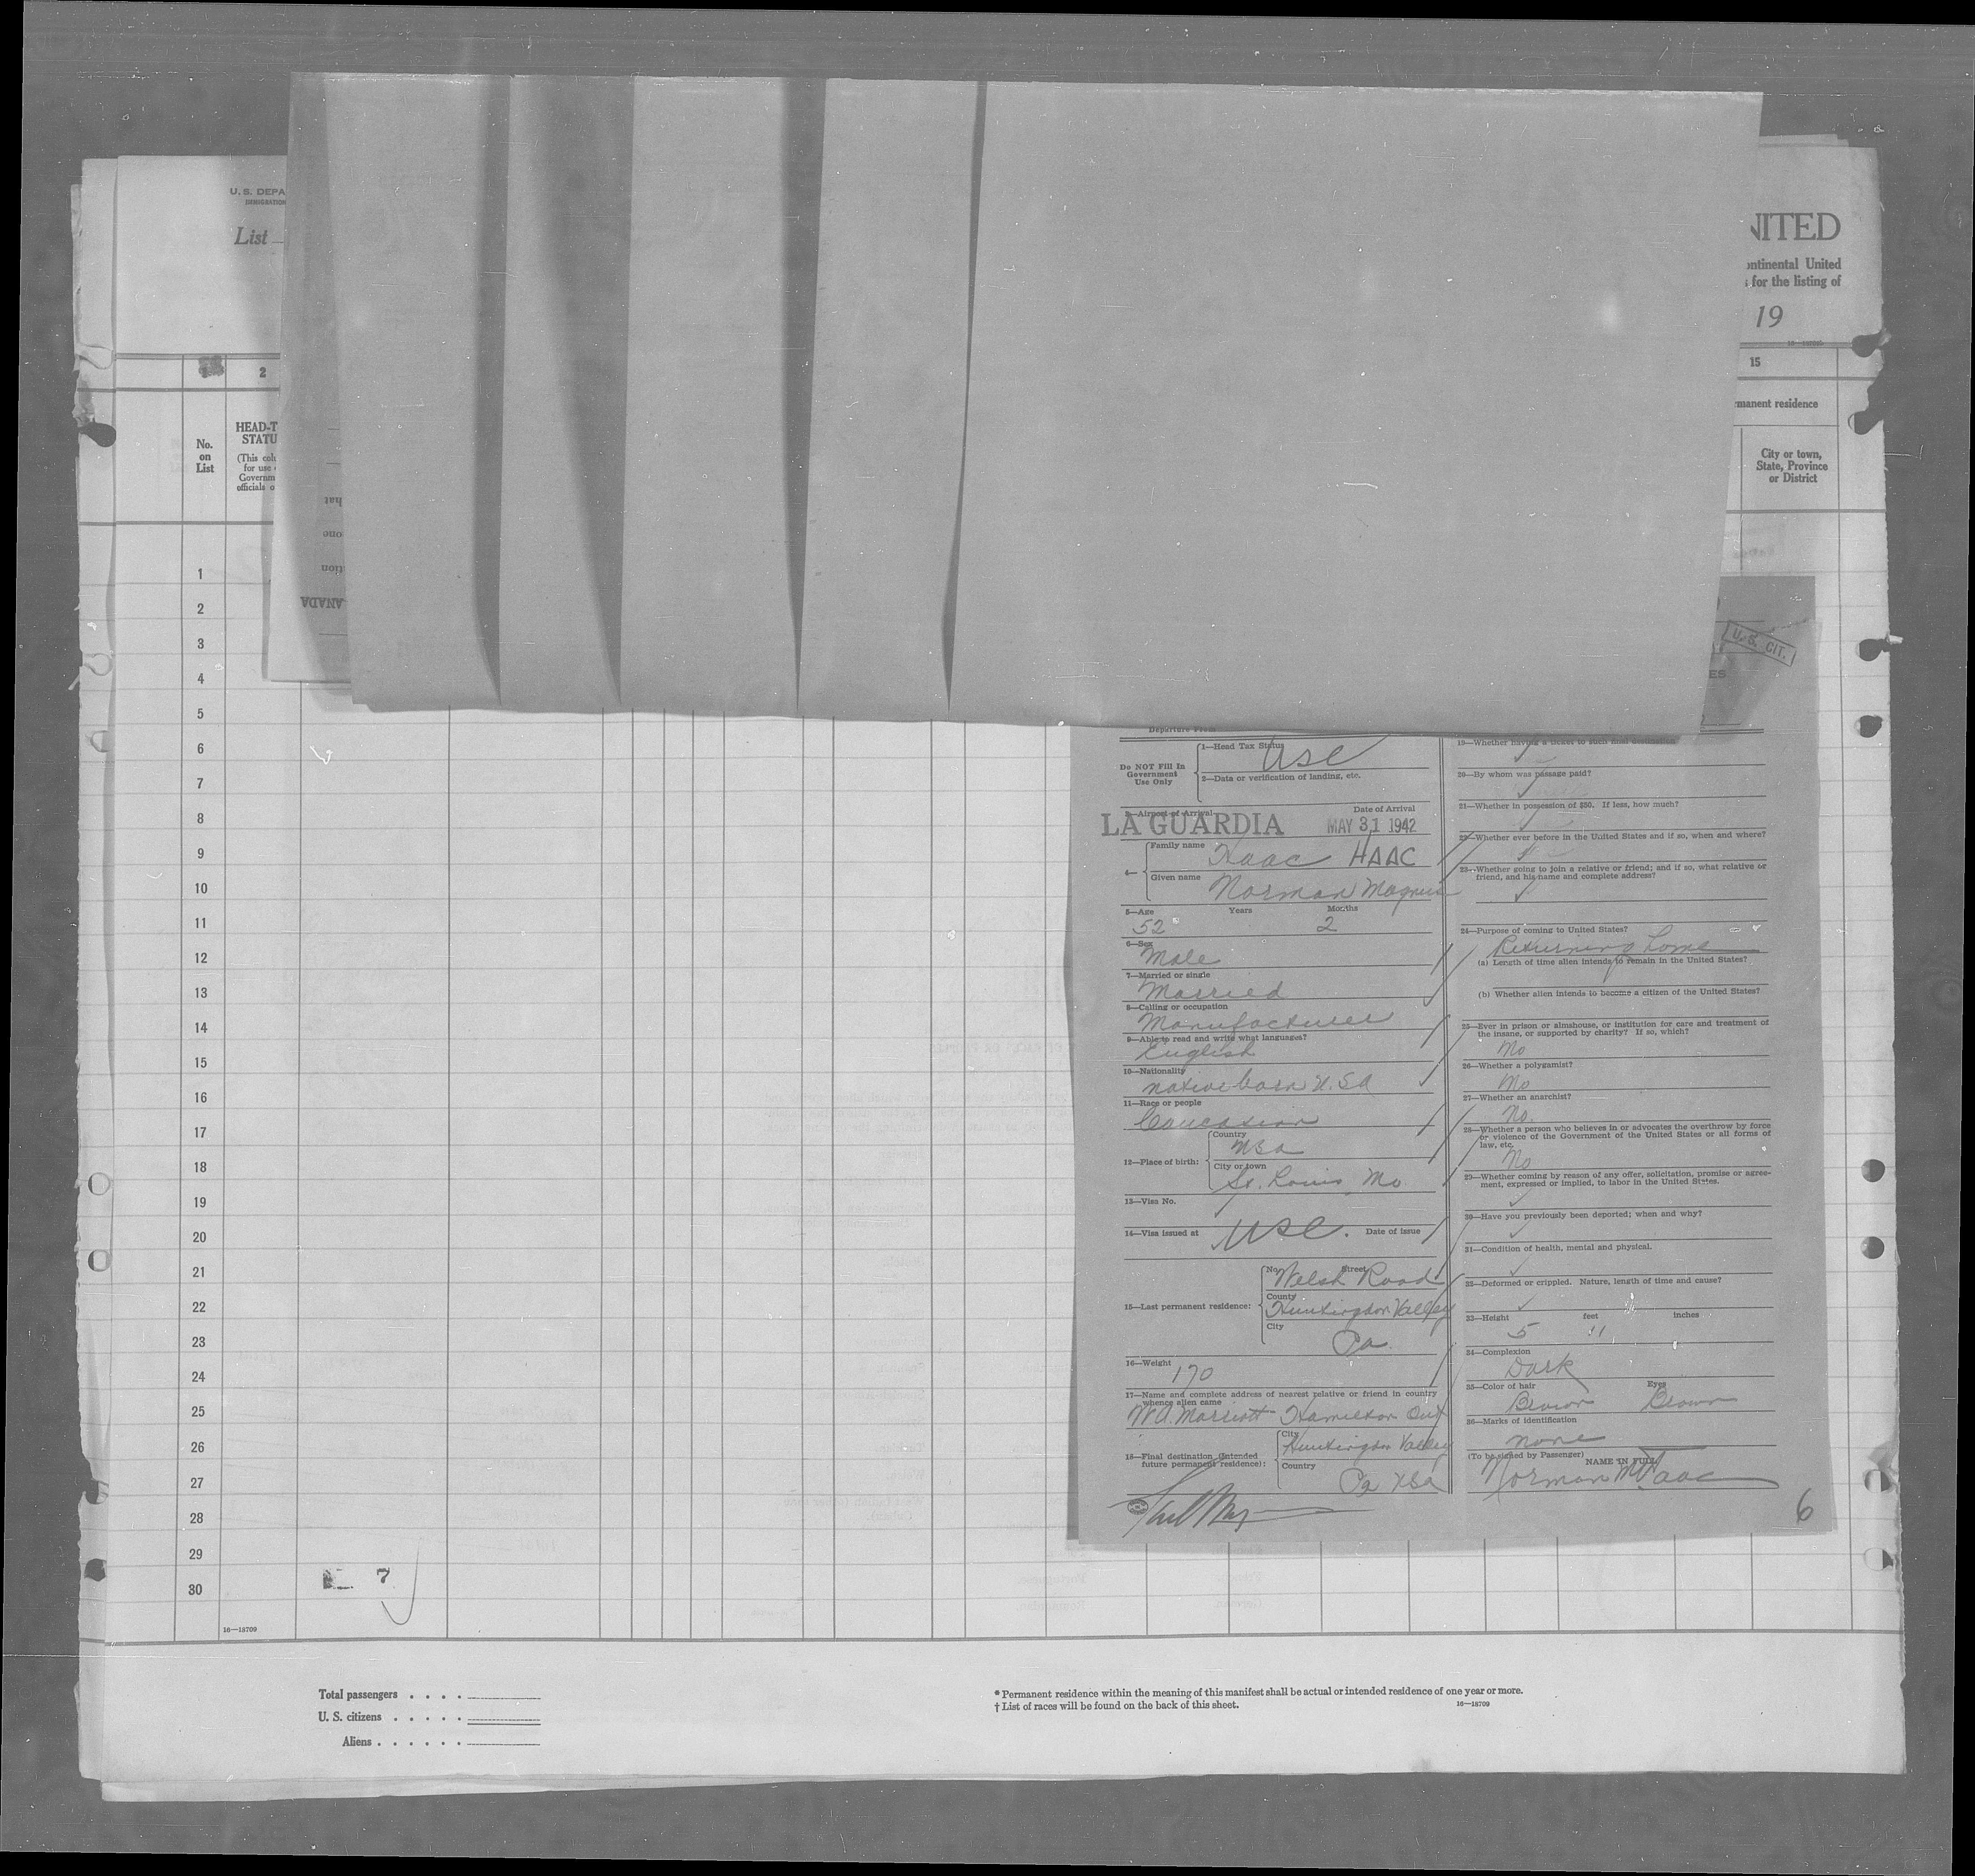 U. S. DEPA
IMMIGRATION
List
NITED
ontinental United
s for the listing of
19
16—18709
1
2
15
manent residence
No.
on
List
HEAD-T
STATU
(This colu
for use
Governm
officials o
City or town,
State, Province
or District
hat
one
ition
ANADA
U. S. CIT.
ES
1
2
3
4
5
6
7
8
9
10
11
12
13
14
15
16
17
18
19
20
21
22
23
24
25
26
27
28
29
30
7
16—18709
Departure From
Do NOT Fill In
Government
Use Only
1—Head Tax Status
USC
2—Data or verification of landing, etc.
3—Airport of Arrival
Date of Arrival
LA GUARDIA MAY 31 1942
4—
Family name Haac HAAC
Given name Norman Magnus
5—Age Years Months
52 2
6—Sex
Male
7—Married or single
Married
8—Calling or occupation
Manufacturer
9—Able to read and write what languages?
English
10—Nationality
native born U.S.A
11—Race or people
Caucasian
12—Place of birth:
Country
USA
City or town
St. Louis Mo.
13—Visa No.
14—Visa issued at USC. Date of issue
15—Last permanent residence:
No. Street
Welsh Road
County
Huntingdon Valley
City
Pa.
16—Weight
170
17—Name and complete address of nearest relative or friend in country
whence alien came
W.A. Marriott Hamilton Ont
18—Final destination (Intended
future permanent residence):
City
Huntingdon Valley
Country
Pa USA
19—Whether having a ticket to such final destination
20—By whom was passage paid?
21—Whether in possession of $50. If less, how much?
22—Whether ever before in the United States and if so, when and where?
23—Whether going to join a relative or friend; and if so, what relative or
friend, and his name and complete address?
24—Purpose of coming to United States?
Returning home
(a) Length of time alien intends to remain in the United States?
(b) Whether alien intends to become a citizen of the United States?
25—Ever in prison or almshouse, or institution for care and treatment of
the insane, or supported by charity? If so, which?
No
26—Whether a polygamist?
No
27—Whether an anarchist?
No.
28—Whether a person who believes in or advocates the overthrow by force
or violence of the Government of the United States or all forms of
law, etc.
No
29—Whether coming by reason of any offer, solicitation, promise or agree-
ment, expressed or implied, to labor in the United States.
30—Have you previously been deported; when and why?
31—Condition of health, mental and physical.
32—Deformed or crippled. Nature, length of time and cause?
33—Height feet inches
5 11
34—Complexion
Dark
35—Color of hair Eyes
Brown Brown
36—Marks of identification
none
(To be signed by Passenger) NAME IN FULL
Norman M. Haac
6
Total passengers . . . .
U. S. citizens . . . . .
Aliens . . . . . .
* Permanent residence within the meaning of this manifest shall be actual or intended residence of one year or more.
† List of races will be found on the back of this sheet.
16—18709